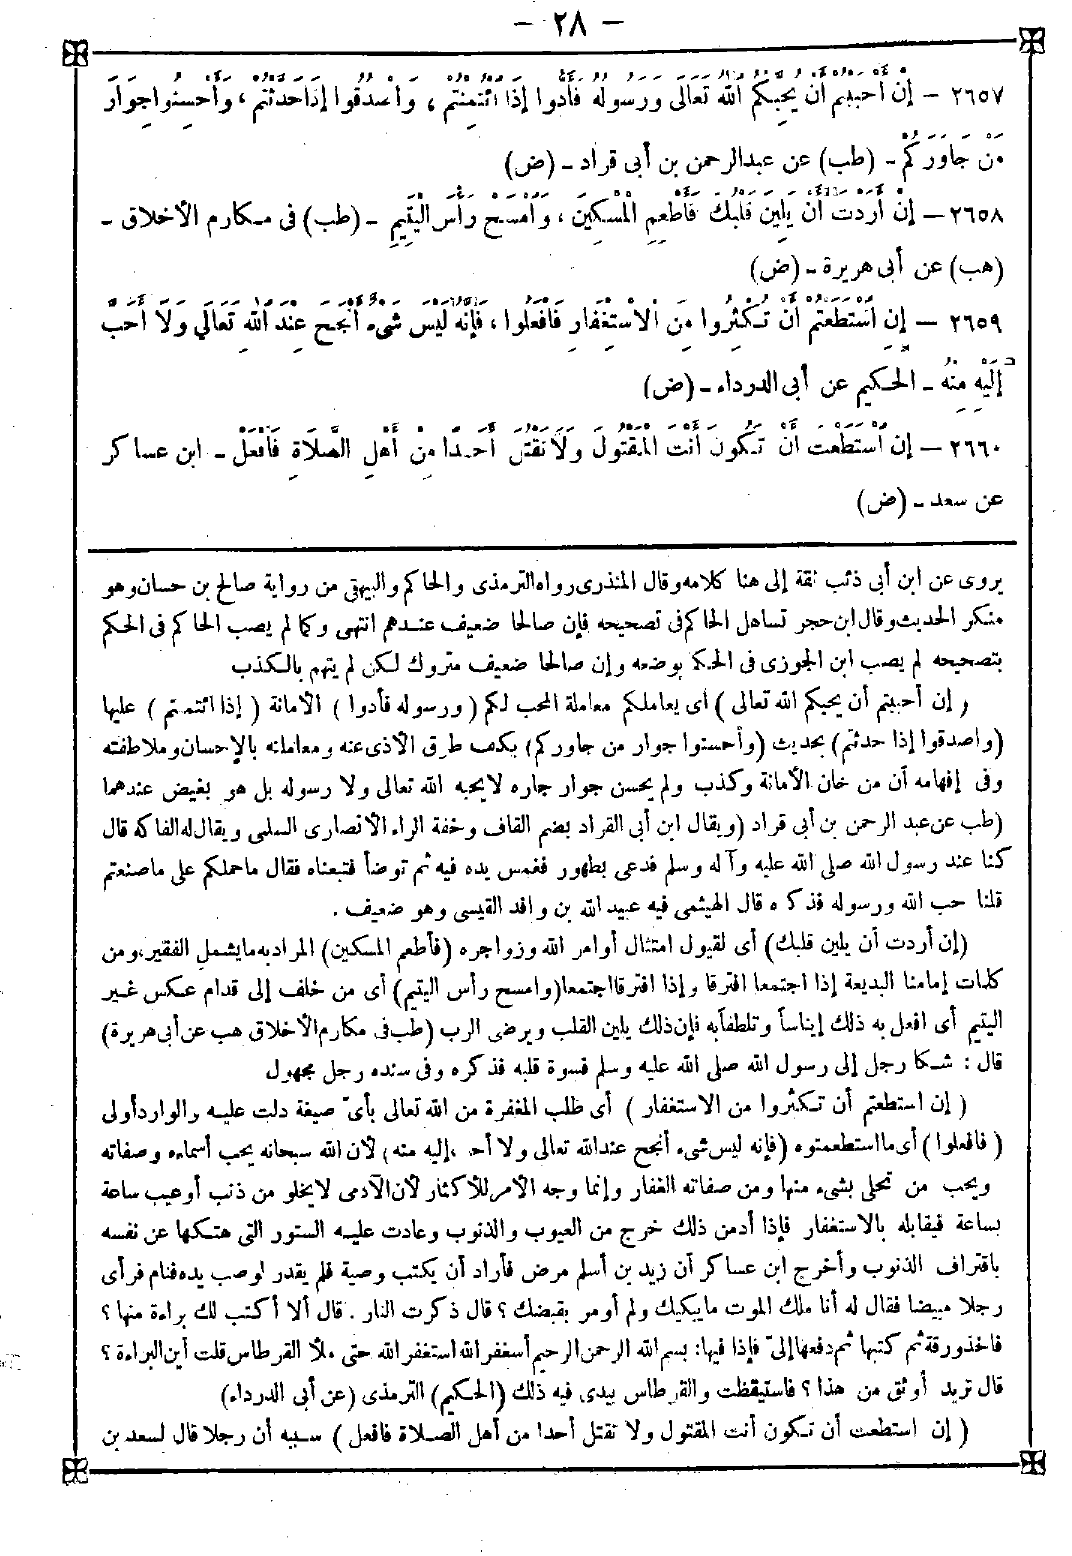 – ٢٨ –
٢٦٥٧ – إِنْ أَحْبَبْتُمْ أَنْ يُحِبَّكُمُ اللهُ تَعَالَى وَرَسُولُهُ فَأَدُّوا إِذَا ائْتُمِنْتُمْ، وَاصْدُقُوا إِذَا حَدَّثْتُمْ، وَأَحْسِنُوا جِوَارَ
مَنْ جَاوَرَكُمْ – (طب) عن عبدالرحمن بن أبى قراد – (ض)
٢٦٥٨ – إِنْ أَرَدْتَ أَنْ يَلِينَ قَلْبُكَ فَأَطْعِمِ الْمِسْكِينَ، وَامْسَحْ رَأْسَ الْيَتِيمِ – (طب) فى مكارم الأخلاق –
(هب) عن أبى هريرة – (ض)
٢٦٥٩ – إِنِ اسْتَطَعْتُمْ أَنْ تُكْثِرُوا مِنَ الِاسْتِغْفَارِ فَافْعَلُوا، فَإِنَّهُ لَيْسَ شَىْءٌ أَنْجَحَ عِنْدَ اللهِ تَعَالَى وَلَا أَحَبَّ
إِلَيْهِ مِنْهُ – الحكيم عن أبى الدرداء – (ض)
٢٦٦٠ – إِنِ اسْتَطَعْتَ أَنْ تَكُونَ أَنْتَ الْمَقْتُولَ وَلَا تَقْتُلَ أَحَدًا مِنْ أَهْلِ الصَّلَاةِ فَافْعَلْ – ابن عساكر
عن سعد – (ض)
يروى عن ابن أبى ذئب ثقة إلى هنا كلامه وقال المنذرى رواه الترمذى والحاكم والبيهقى من رواية صالح بن حسان وهو
منكر الحديث وقال ابن حجر تساهل الحاكم فى تصحيحه فإن صالحا ضعيف عندهم انتهى وكما لم يصب الحاكم فى الحكم
بتصحيحه لم يصب ابن الجوزى فى الحكم بوضعه وإن صالحا ضعيف متروك لكن لم يتهم بالكذب
(إن أحببتم أن يحبكم الله تعالى) أى يعاملكم معاملة المحب لكم (ورسوله فأدوا) الأمانة (إذا ائتمنتم) عليها
(واصدقوا إذا حدثتم) بحديث (وأحسنوا جوار من جاوركم) بكف طرق الأذى عنه ومعاملته بالإحسان وملاطفته
وفى إفهامه أن من خان الأمانة وكذب ولم يحسن جوار جاره لا يحبه الله تعالى ولا رسوله بل هو بغيض عندهما
(طب عن عبد الرحمن بن أبى قراد) ويقال ابن أبى القراد بضم القاف وخفة الراء الأنصارى السلمى ويقال له الفاكه قال
كنا عند رسول الله صلى الله عليه وآله وسلم فدعى بطهور فغمس يده فيه ثم توضأ فتبعناه فقال ما حملكم على ما صنعتم
قلنا حب الله ورسوله فذكره قال الهيثمى فيه عبيد الله بن واقد القيسى وهو ضعيف .
(إن أردت أن يلين قلبك) أى لقبول امتثال أوامر الله وزواجره (فأطعم المسكين) المراد به ما يشمل الفقير، ومن
كلمات إمامنا البديعة إذا اجتمعا افترقا وإذا افترقا اجتمعا (وامسح رأس اليتيم) أى من خلف إلى قدام عكس غير
اليتيم أى افعل به ذلك إيناساً وتلطفاً به فإن ذلك يلين القلب ويرضى الرب (طب فى مكارم الأخلاق هب عن أبى هريرة)
قال: شكا رجل إلى رسول الله صلى الله عليه وسلم قسوة قلبه فذكره وفى سنده رجل مجهول
(إن استطعتم أن تكثروا من الاستغفار) أى طلب المغفرة من الله تعالى بأىّ صيغة دلت عليه والوارد أولى
(فافعلوا) أى ما استطعمتوه (فإنه ليس شىء أنجح عند الله تعالى ولا أحب إليه منه) لأن الله سبحانه يحب أسماءه وصفاته
ويحب من تحلى بشىء منها ومن صفاته الغفار وإنما وجه الأمر للأكثار لأن الآدمى لا يخلو من ذنب أو عيب ساعة
بساعة فيقابله بالاستغفار فإذا أدمن ذلك خرج من العيوب والذنوب وعادت عليه الستور التى هتكها عن نفسه
باقتراف الذنوب وأخرج ابن عساكر أن زيد بن أسلم مرض فأراد أن يكتب وصية فلم يقدر لوصب يده فنام فرأى
رجلا مبيضا فقال له أنا ملك الموت ما يبكيك ولم أومر بقبضك؟ قال ذكرت النار . قال ألا أكتب لك براءة منها؟
فأخذ ورقة ثم كتبها ثم دفعها إلىّ فإذا فيها: بسم الله الرحمن الرحيم أستغفر الله استغفر الله حتى ملأ القرطاس قلت أين البراءة؟
قال تريد أوثق من هذا؟ فاستيقظت والقرطاس بيدى فيه ذلك (الحكيم) الترمذى (عن أبى الدرداء)
(إن استطعت أن تكون أنت المقتول ولا تقتل أحدا من أهل الصلاة فافعل) سببه أن رجلا قال لسعد بن